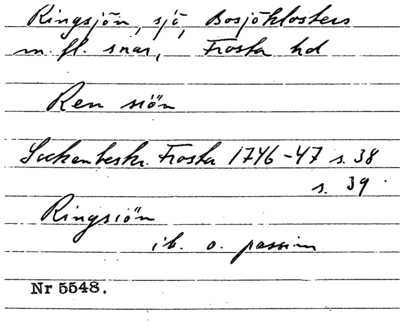 Ringsjön, sjö, Bosjöklosters
m. fl. snar, Frosta hd
Ren siön
Sockenbeskr. Frosta 1746-47 s. 38
s. 39
Ringsiön
ib. o. passim
Nr 5548.